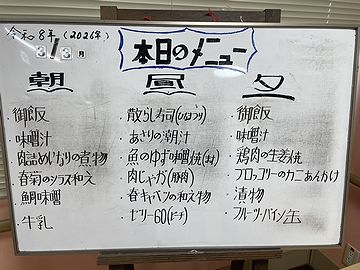 令和8年(2026年)
3/3月
本日のメニュー
朝 昼 夕
・御飯
・味噌汁
・肉詰めいなりの煮物
・春菊のシラス和え
・鯛味噌
・牛乳
・散らし寿司(ひなまつり)
・あさりの潮汁
・魚のゆず味噌焼
・肉じゃが(豚肉)
・春キャベツの和え物
・ゼリー60(ピーチ)
・御飯
・味噌汁
・鶏肉の生姜焼
・ブロッコリーのカニあんかけ
・漬物
・フルーツ・パイン缶